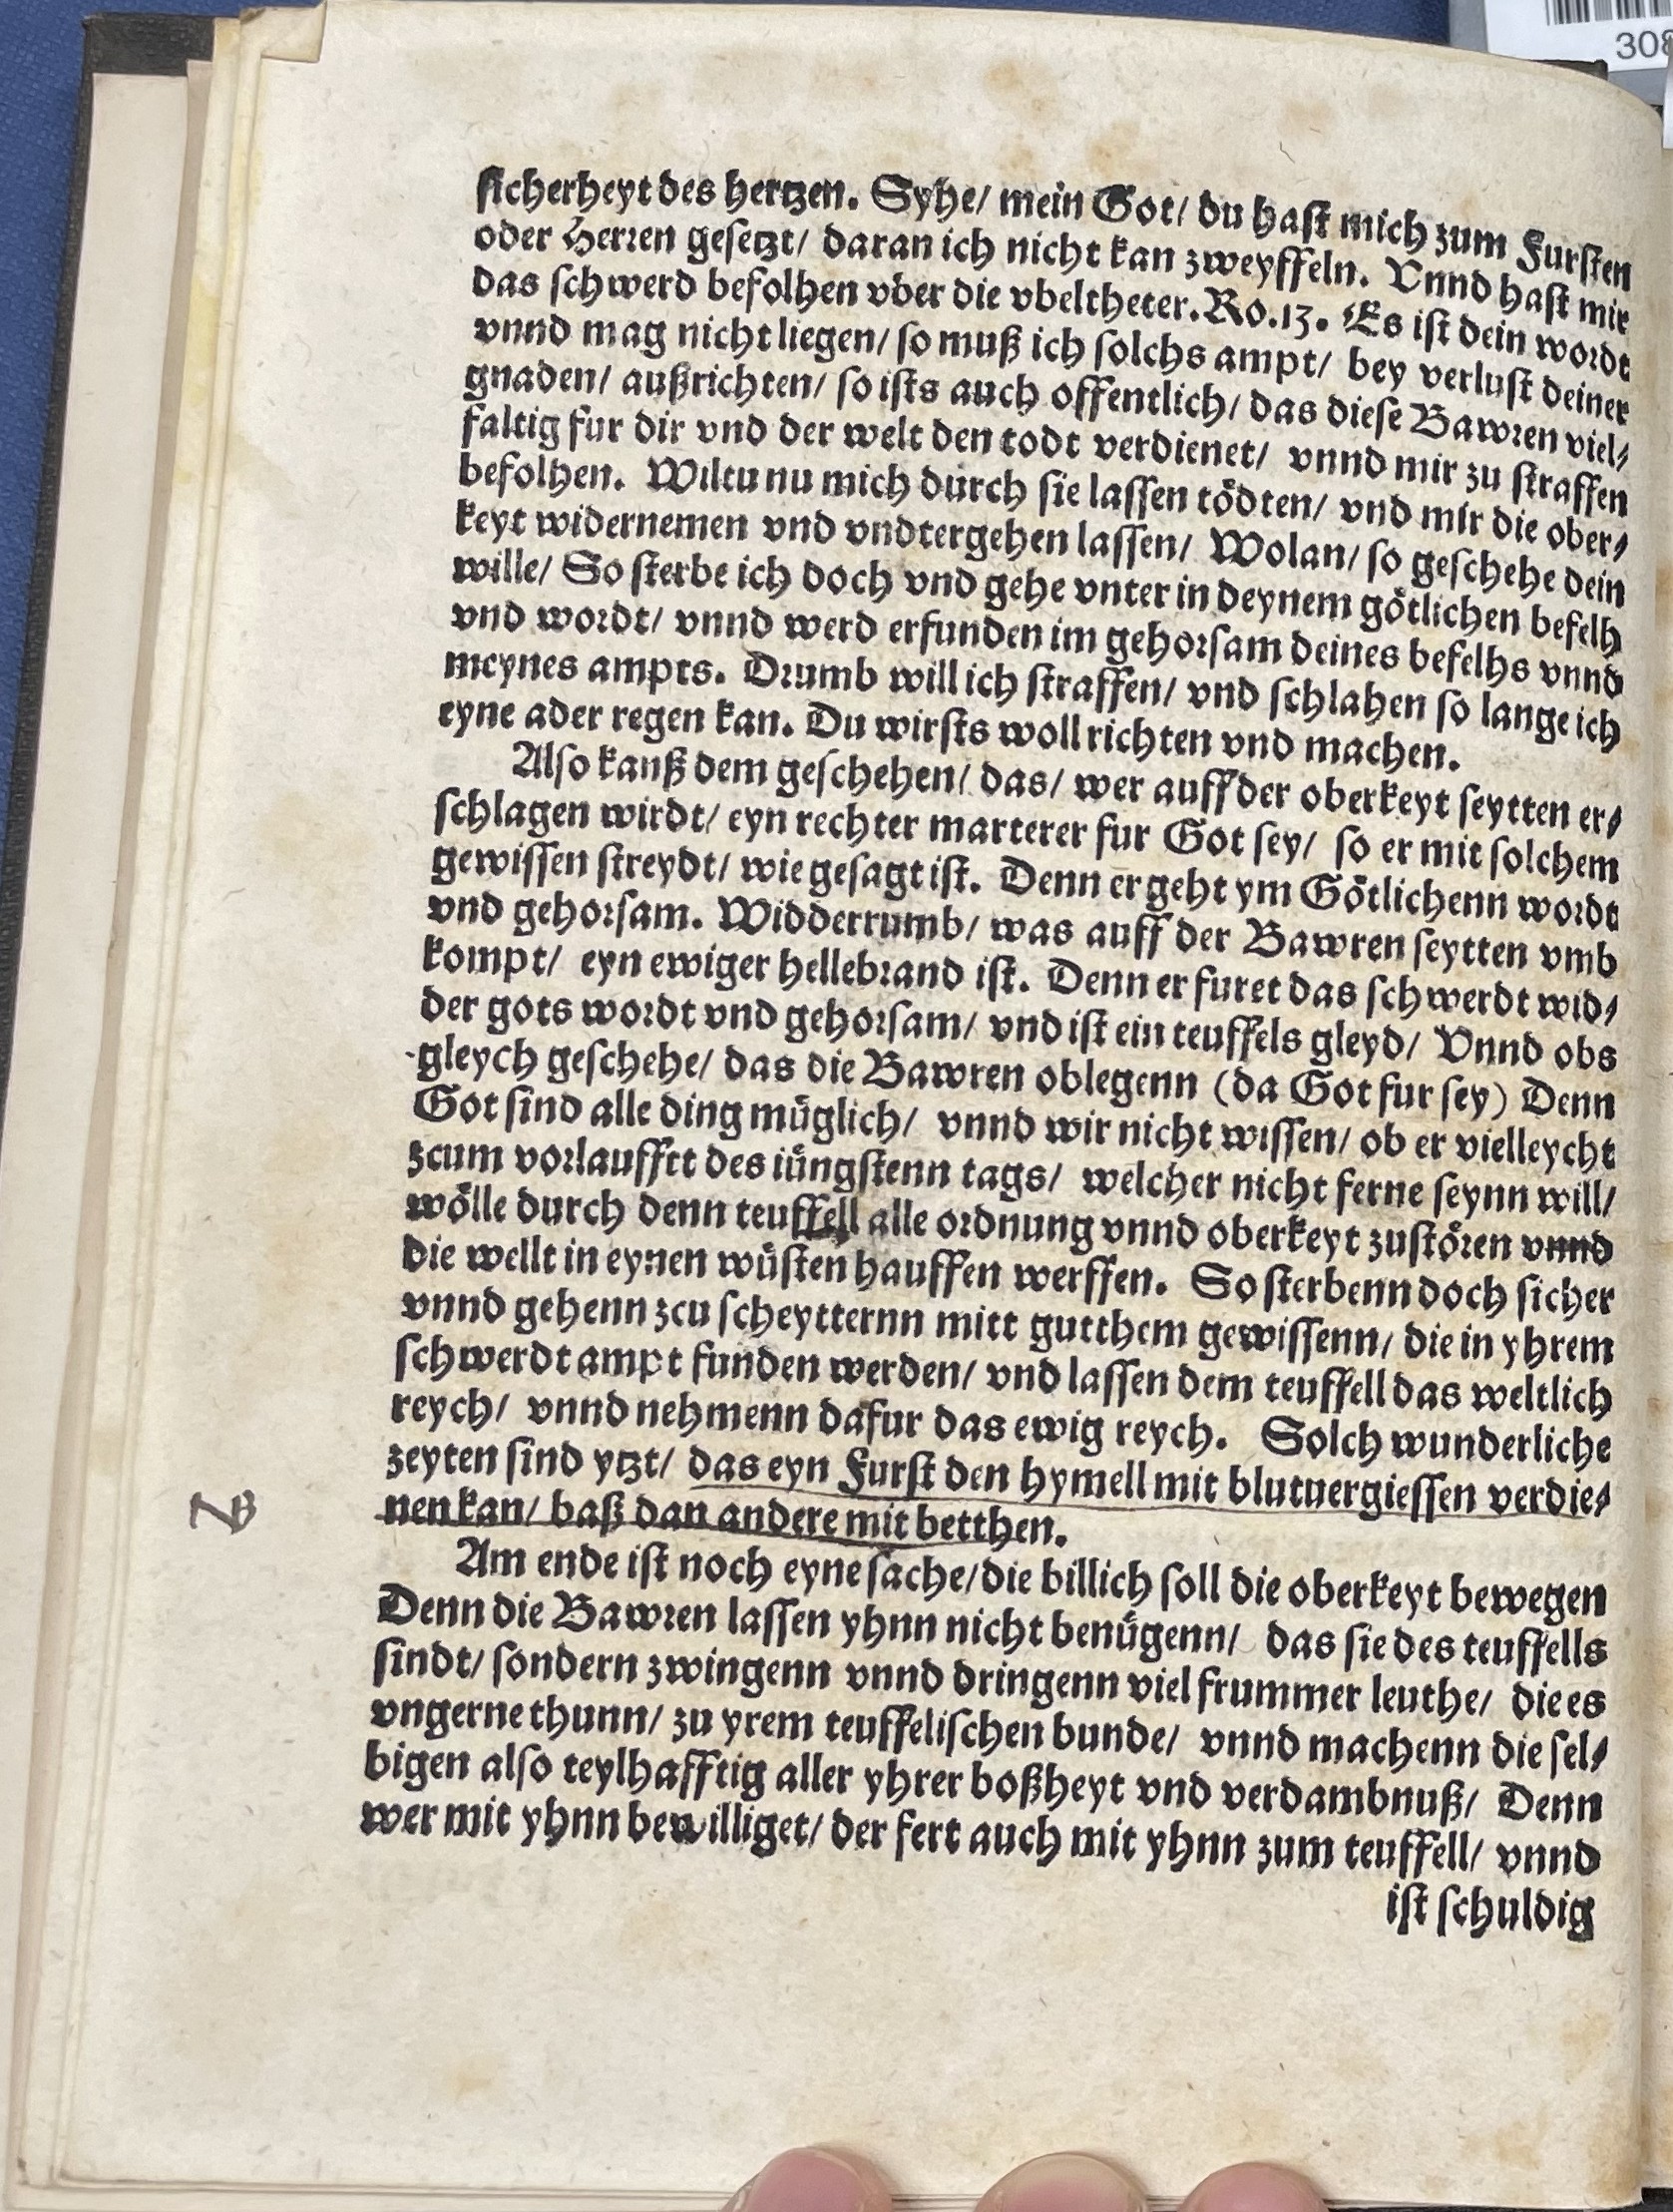 308
sicherheyt des hertzen. Syhe/ mein Got/ du hast mich zum Fursten
oder Herren gesetzt/ daran ich nicht kan zweyffeln. Vnnd hast mir
das schwerd befolhen vber die vbeltheter. Ro. 13. Es ist dein wordt
vnnd mag nicht liegen/ so muß ich solchs ampt/ bey verlust deiner
gnaden/ außrichten/ so ists auch offentlich/ das diese Bawren viel⸗
faltig fur dir vnd der welt den todt verdienet/ vnnd mir zu straffen
befolhen. Wiltu nu mich durch sie lassen tödten/ vnd mir die ober⸗
keyt widernemen vnd vndtergehen lassen/ Wolan/ so geschehe dein
wille/ So sterbe ich doch vnd gehe vnter in deynem götlichen befelh
vnd wordt/ vnnd werd erfunden im gehorsam deines befelhs vnnd
meynes ampts. Drumb will ich straffen/ vnd schlahen so lange ich
eyne ader regen kan. Du wirsts woll richten vnd machen.
Also kanß dem geschehen/ das/ wer auff der oberkeyt seytten er⸗
schlagen wirdt/ eyn rechter marterer fur Got sey/ so er mit solchem
gewissen streydt/ wie gesagt ist. Denn er geht ym Götlichenn wordt
vnd gehorsam. Widderrumb/ was auff der Bawren seytten vmb
kompt/ eyn ewiger hellebrand ist. Denn er furet das schwerdt wid⸗
der gots wordt vnd gehorsam/ vnd ist ein teuffels gleyd/ Vnnd obs
gleych geschehe/ das die Bawren oblegenn (da Got fur sey) Denn
Got sind alle ding müglich/ vnnd wir nicht wissen/ ob er vielleycht
zcum vorlaufftt des iüngstenn tags/ welcher nicht ferne seynn will/
wölle durch denn teuffell alle ordnung vnnd oberkeyt zustören vnnd
die wellt in eynen wüsten hauffen werffen. So sterbenn doch sicher
vnnd gehenn zcu scheytternn mitt gutthem gewissenn/ die in yhrem
schwerdt ampt funden werden/ vnd lassen dem teuffell das weltlich
reych/ vnnd nehmenn dafur das ewig reych. Solch wunderliche
zeyten sind ytzt/ das eyn Furst den hymell mit blutuergiessen verdie⸗
nen kan/ baß dan andere mit betthen.
Am ende ist noch eyne sache/ die billich soll die oberkeyt bewegen
Denn die Bawren lassen yhnn nicht benügenn/ das sie des teuffells
sindt/ sondern zwingenn vnnd dringenn viel frummer leuthe/ die es
vngerne thunn/ zu yrem teuffelischen bunde/ vnnd machenn die sel⸗
bigen also teylhafftig aller yhrer boßheyt vnd verdambnuß/ Denn
wer mit yhnn bewilliget/ der fert auch mit yhnn zum teuffell/ vnnd
ist schuldig